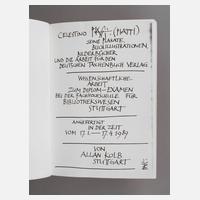 CELESTINO PIATTI (PIATTI)
SEINE PLAKATE,
BUCHILLUSTRATIONEN,
BILDERBÜCHER
UND DIE ARBEIT FÜR DEN
DEUTSCHEN TASCHENBUCH VERLAG
WISSENSCHAFTLICHE
ARBEIT
ZUM DIPLOM-EXAMEN
BEI DER FACHHOCHSCHULE FÜR
BIBLIOTHEKSWESEN
STUTTGART
ANGEFERTIGT
IN DER ZEIT
VOM 17.1.-17.4 1989
VON
ALLAN KOLB
STUTTGART